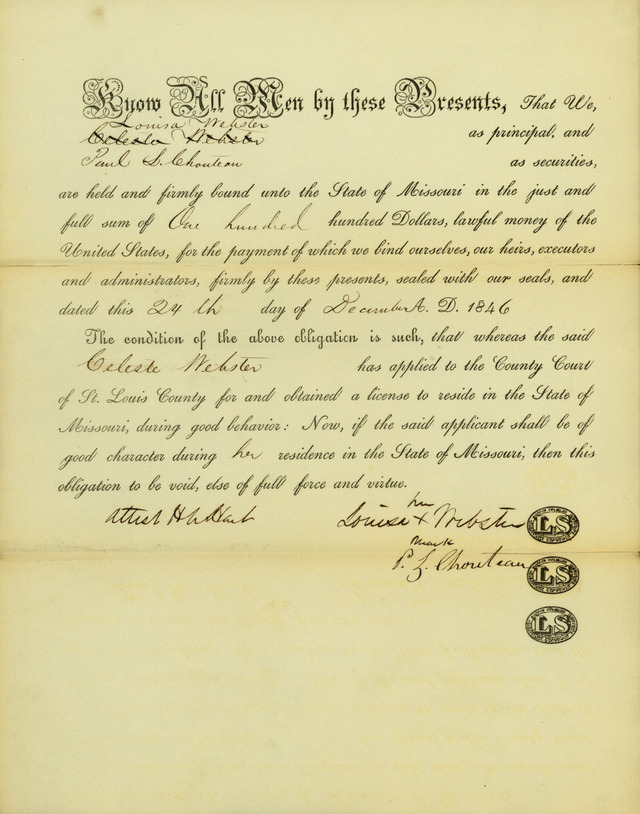 Know All Men by these Presents, That We,
Louisa Webster
Celeste Webster as principal, and
Paul L. Chouteau as securities,
are held and firmly bound unto the State of Missouri in the just and
full sum of One hundred hundred Dollars, lawful money of the
United States, for the payment of which we bind ourselves, our heirs, executors
and administrators, firmly by these presents, sealed with our seals, and
dated this 24th day of December A. D. 1846
The condition of the above obligation is such, that whereas the said
Celeste Webster has applied to the County Court
of St. Louis County for and obtained a license to reside in the State of
Missouri, during good behavior: Now, if the said applicant shall be of
good character during her residence in the State of Missouri, then this
obligation to be void, else of full force and virtue.
her
Attest Louisa X Webster LS
mark
P. L. Chouteau LS
LS